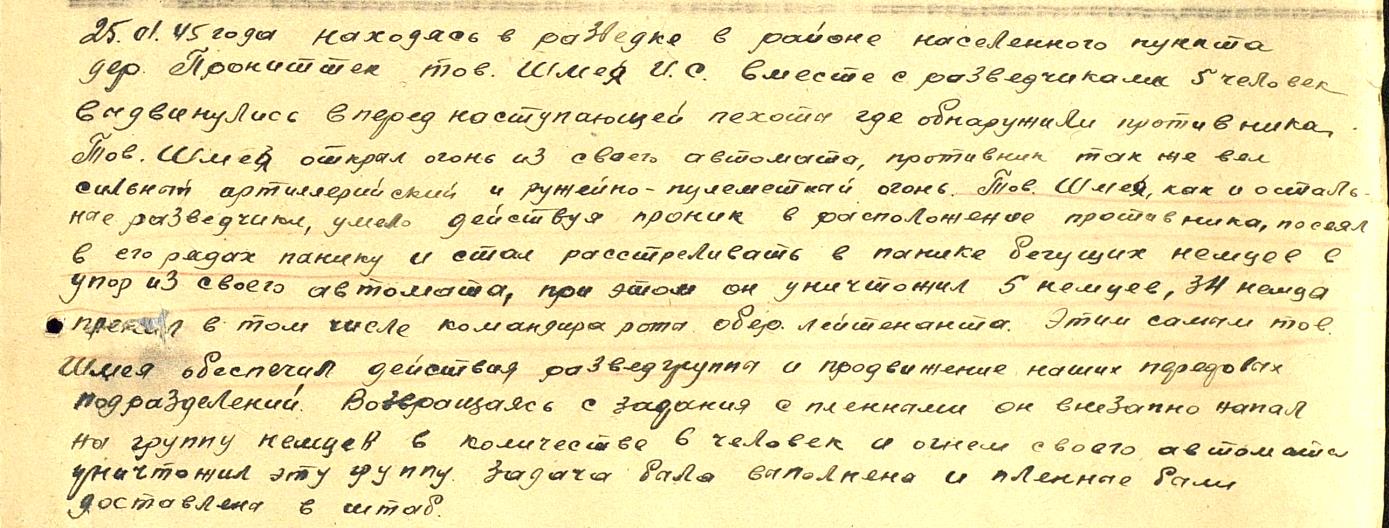 25.01.45 года находясь в разведке в районе населенного пункта
дер. Прониттен тов. Шмея И.С. вместе с разведчиками 5 человек
выдвинулись вперед наступающей пехоты где обнаружили противника.
Тов. Шмея открыл огонь из своего автомата, противник так же вел
сильный артиллерийский и ружейно-пулеметный огонь. Тов. Шмея, как и осталь-
ные разведчики, умело действуя проник в расположение противника, посеял
в его рядах панику и стал расстреливать в панике бегущих немцев в
упор из своего автомата, при этом он уничтожил 5 немцев, 34 немца
в том числе командира роты обер. лейтенанта. Этим самым тов.
Шмея обеспечил действия разведгруппы и продвижение наших передовых
подразделений. Возвращаясь с задания с пленными он внезапно напал
на группу немцев в количестве 6 человек и огнем своего автомата
уничтожил эту группу. Задача была выполнена и пленные были
доставлены в штаб.